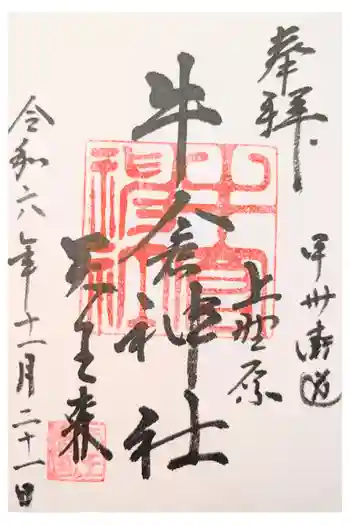 奉拝
甲州街道
上野原
牛倉神社
天王森
令和六年十一月二十一日